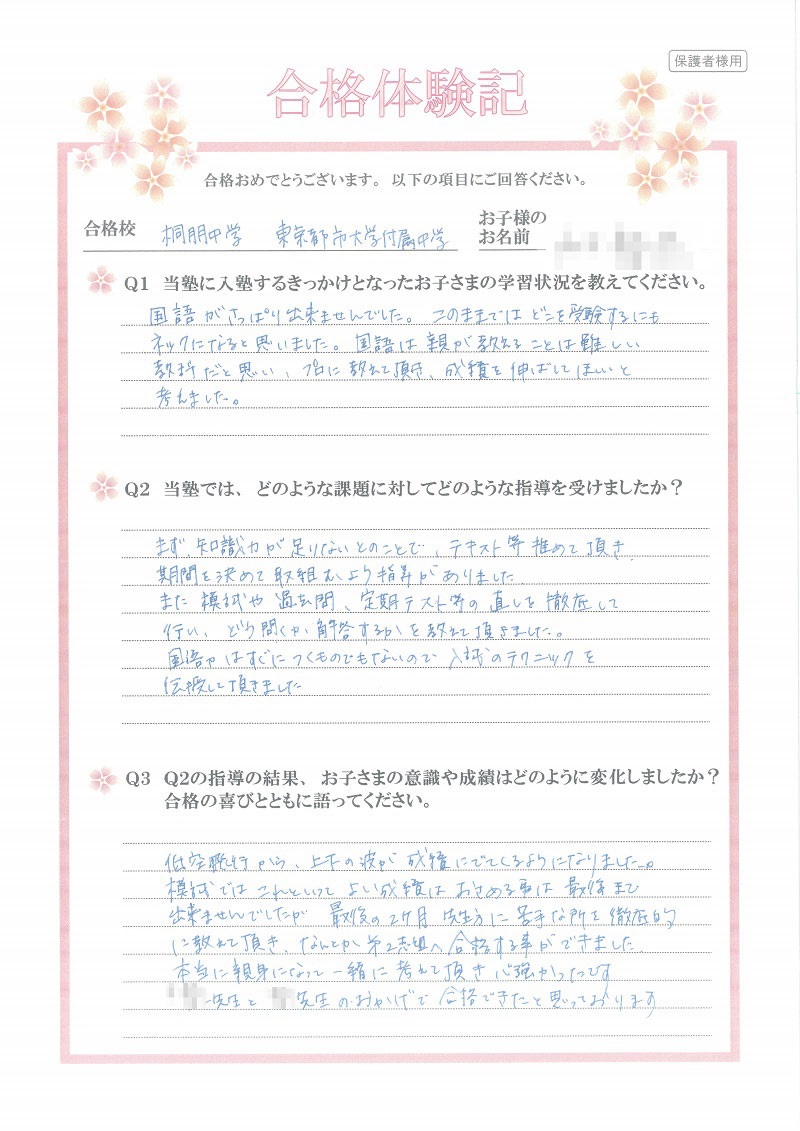 保護者様用
合格体験記
合格おめでとうございます。以下の項目にご回答ください。
合格校 桐朋中学 東京都市大学付属中学
お子様の
お名前
Q1 当塾に入塾するきっかけとなったお子さまの学習状況を教えてください。
国語がさっぱり出来ませんでした。このままではどこを受験するにも
ネックになると思いました。国語は親が教えることは難しい
教科だと思い、プロに教えて頂き、成績を伸ばしてほしいと
考えました。
Q2 当塾では、どのような課題に対してどのような指導を受けましたか？
まず、知識力が足りないとのことで、テキスト等進めて頂き、
期間を決めて取組むよう指導がありました。
また模試や過去問、定期テスト等の直しを徹底して
行い、どう聞くか解答するかを教えて頂きました。
国語力はすぐにつくものでもないので入試のテクニックを
伝授して頂きました
Q3 Q2の指導の結果、お子さまの意識や成績はどのように変化しましたか？
合格の喜びとともに語ってください。
低空飛行から、上下の波が成績にでてくるようになりました。
模試ではこれといってよい成績はおさめる事は最後まで
出来ませんでしたが最後の2ヶ月先生方に苦手な所を徹底的
に教えて頂き、なんとか第2志望へ合格する事ができました。
本当に親身になって一緒に考えて頂き心強かったです
先生と 先生のおかげで合格できたと思っております